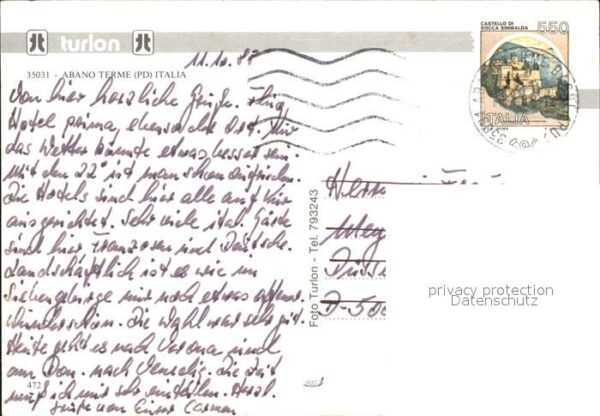 turlon
11.10.87
CASTELLO DI
ROCCA SINIBALDA
550
ITALIA
35031 - ABANO TERME (PD) ITALIA
Von hier herzliche Grüße. Flug
Hotel prima, ebenso der Ort. Nur
das Wetter könnte etwas besser sein.
Mit den 22° ist man schon zufrieden.
Die Hotels sind hier alle auf Kur
ausgerichtet. Sehr viele ital. Gäste
sind hier Franzosen und Deutsche.
Landschaftlich ist es wie im
Siebengebirge nur noch etwas
Wunderschön. Die Wahl war sehr gut.
Heute geht es nach Verona und
am Don. nach Venedig. Die Zeit
muß ich mir sehr einteilen. Herzl.
Grüße von Carmen
472
Foto Turlon - Tel. 793243
Herrn
D-500
privacy protection
Datenschutz